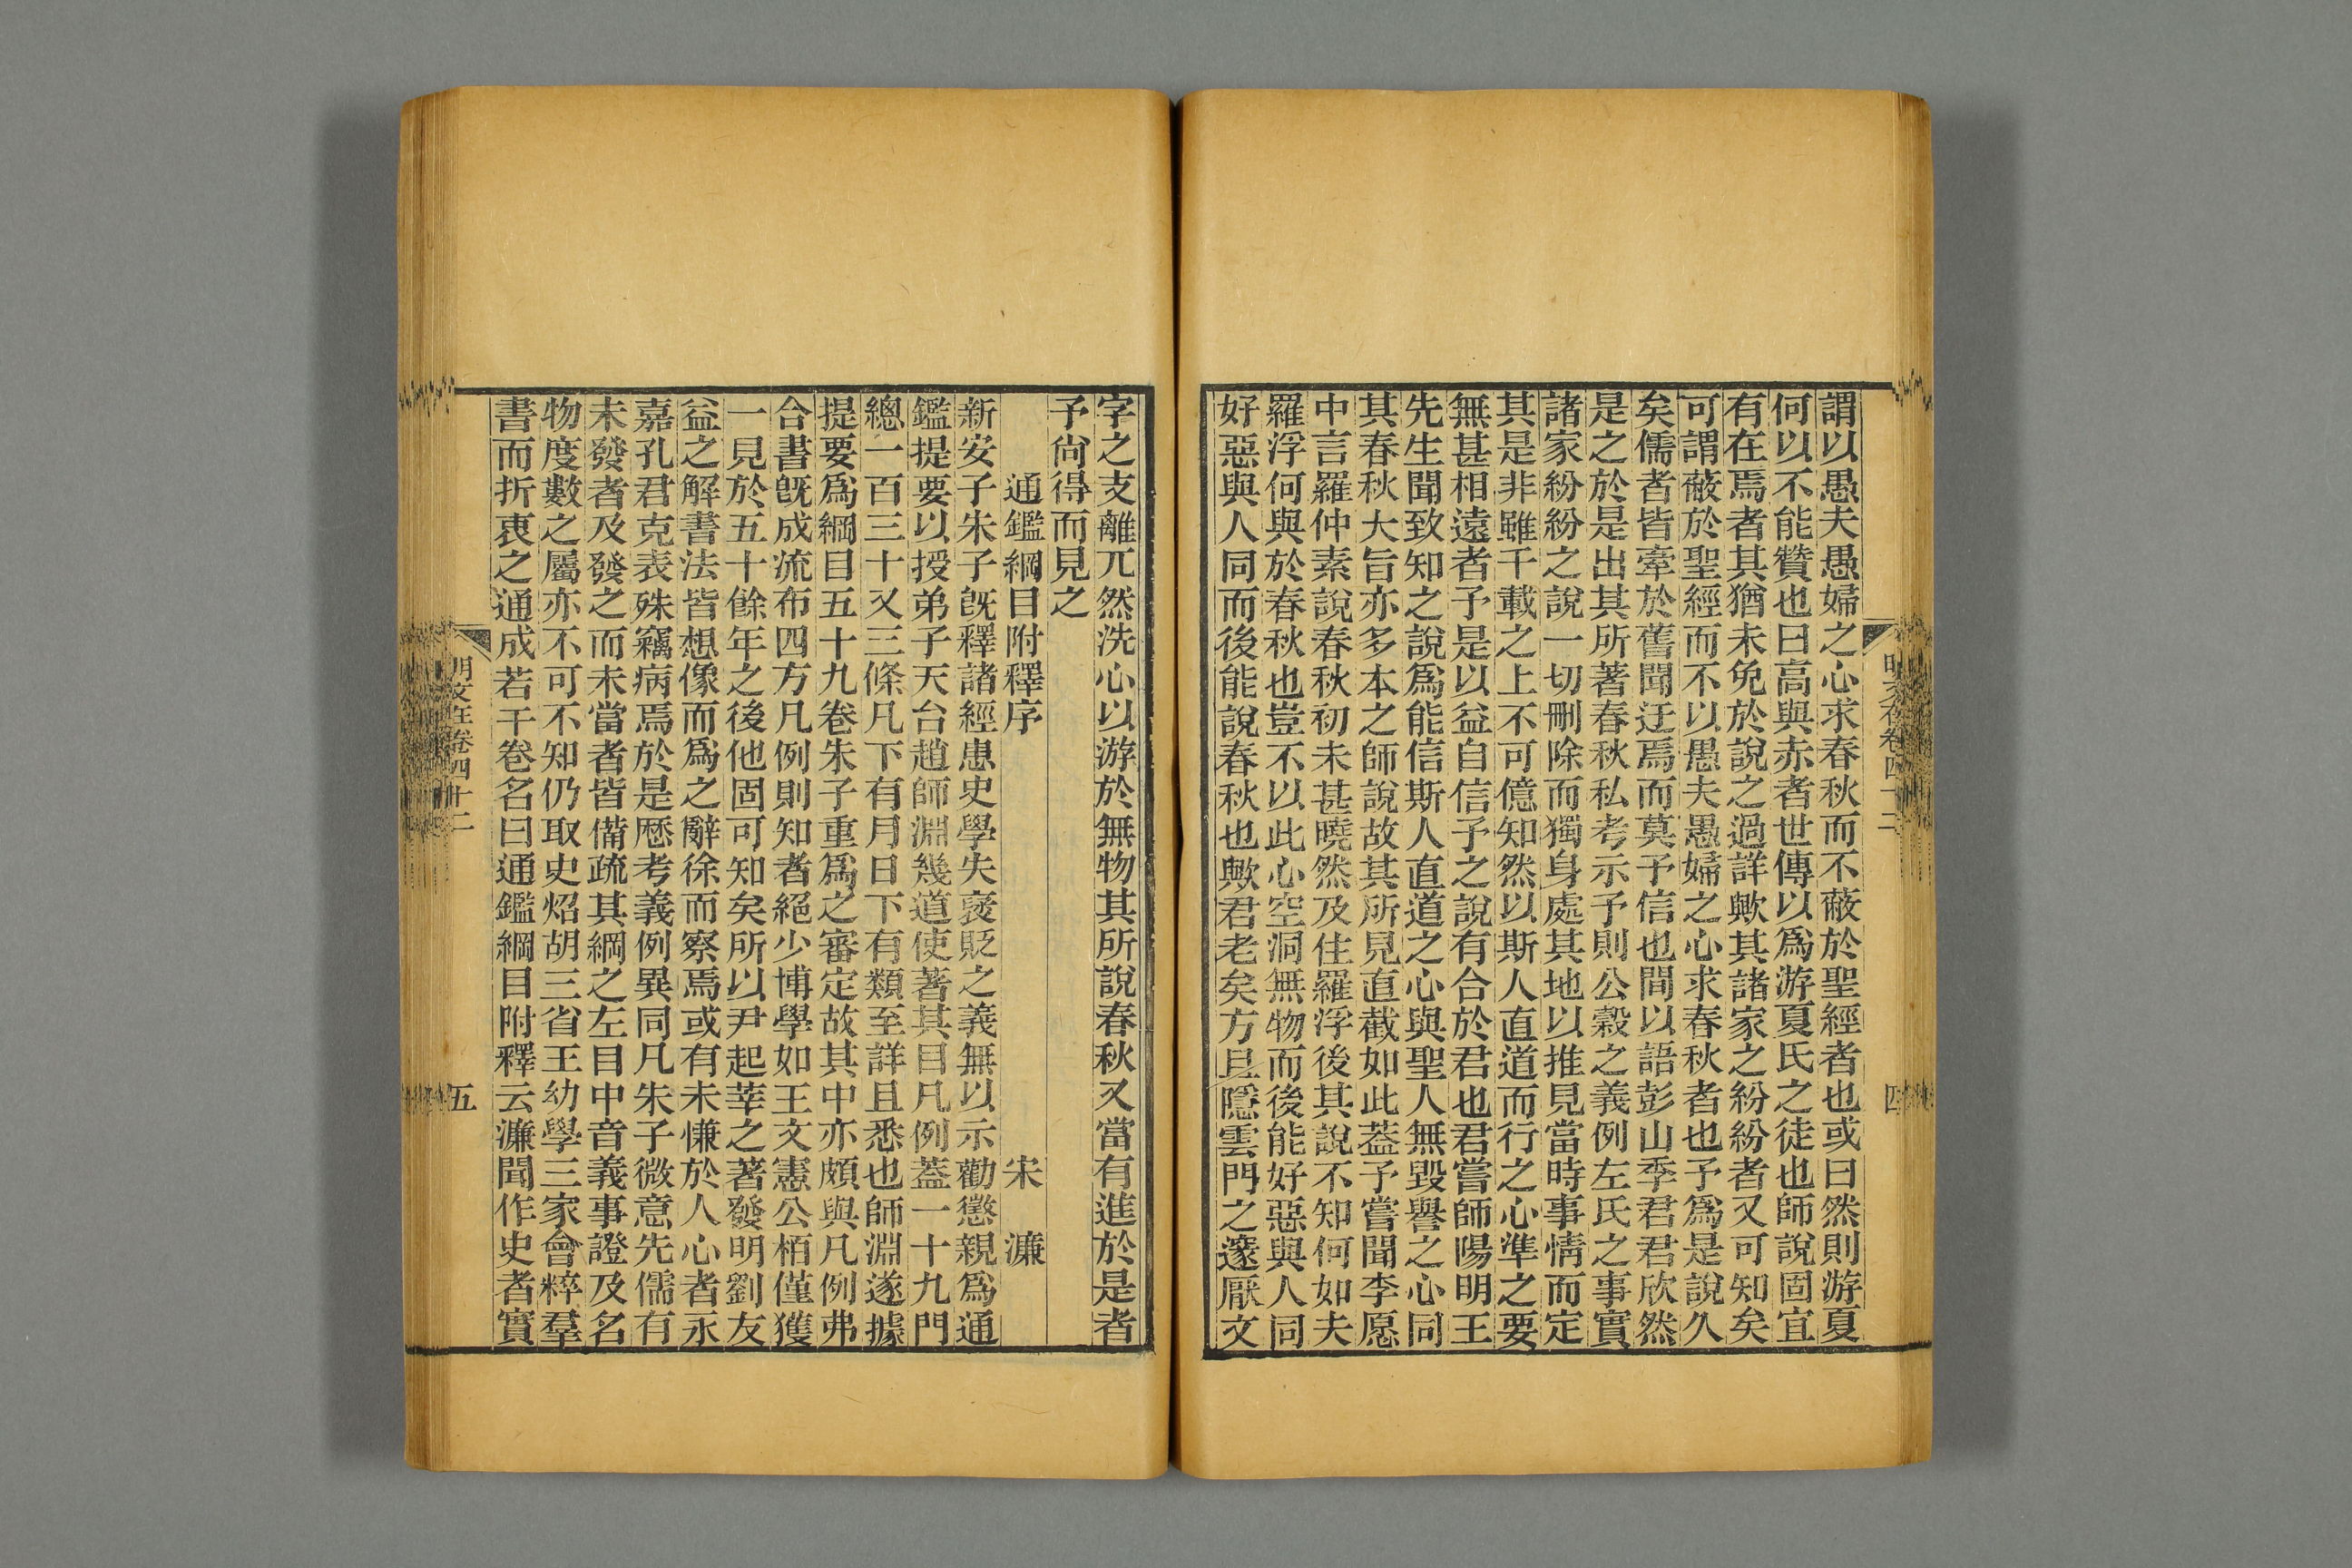 謂以愚夫愚婦之心求春秋而不蔽於聖經者也或曰然則游夏
何以不能贊也曰高與赤者世傳以爲游夏氏之徒也師說固宜
有在焉者其猶未免於說之過詳歟其諸家之紛紛者又可知矣
可謂蔽於聖經而不以愚夫愚婦之心求春秋者也予爲是說久
矣儒者皆牽於舊聞迂焉而莫予信也間以語彭山季君君欣然
是之於是出其所著春秋私考示予則公穀之義例左氏之事實
諸家紛紛之說一切刪除而獨身處其地以推見當時事情而定
其是非雖千載之上不可億知然以斯人直道而行之心準之要
無甚相遠者予是以益自信予之說有合於君也君嘗師陽明王
先生聞致知之說爲能信斯人直道之心與聖人無毀譽之心同
其春秋大旨亦多本之師說故其所見直截如此蓋予嘗聞李愿
中言羅仲素說春秋初未甚曉然及住羅浮後其說不知何如夫
羅浮何與於春秋也豈不以此心空洞無物而後能好惡與人同
好惡與人同而後能說春秋也歟君老矣方且隱雲門之邃厭文
明文在卷四十二
四
字之支離兀然洗心以游於無物其所說春秋又當有進於是者
予尙得而見之
通鑑綱目附釋序 宋濂
新安子朱子旣釋諸經患史學失褒貶之義無以示勸懲親爲通
鑑提要以授弟子天台趙師淵幾道使著其目凡例蓋一十九門
總一百三十又三條凡下有月日下有類至詳且悉也師淵遂據
提要爲綱目五十九卷朱子重爲之審定故其中亦頗與凡例弗
合書旣成流布四方凡例則知者絕少博學如王文憲公栢僅獲
一見於五十餘年之後他固可知矣所以尹起莘之著發明劉友
益之解書法皆想像而爲之辭徐而察焉或有未慊於人心者永
嘉孔君克表殊竊病焉於是歷考義例異同凡朱子微意先儒有
未發者及發之而未當者皆備疏其綱之左目中音義事證及名
物度數之屬亦不可不知仍取史炤胡三省王幼學三家會粹羣
書而折衷之通成若干卷名曰通鑑綱目附釋云濂聞作史者實
明文在卷四十二
五